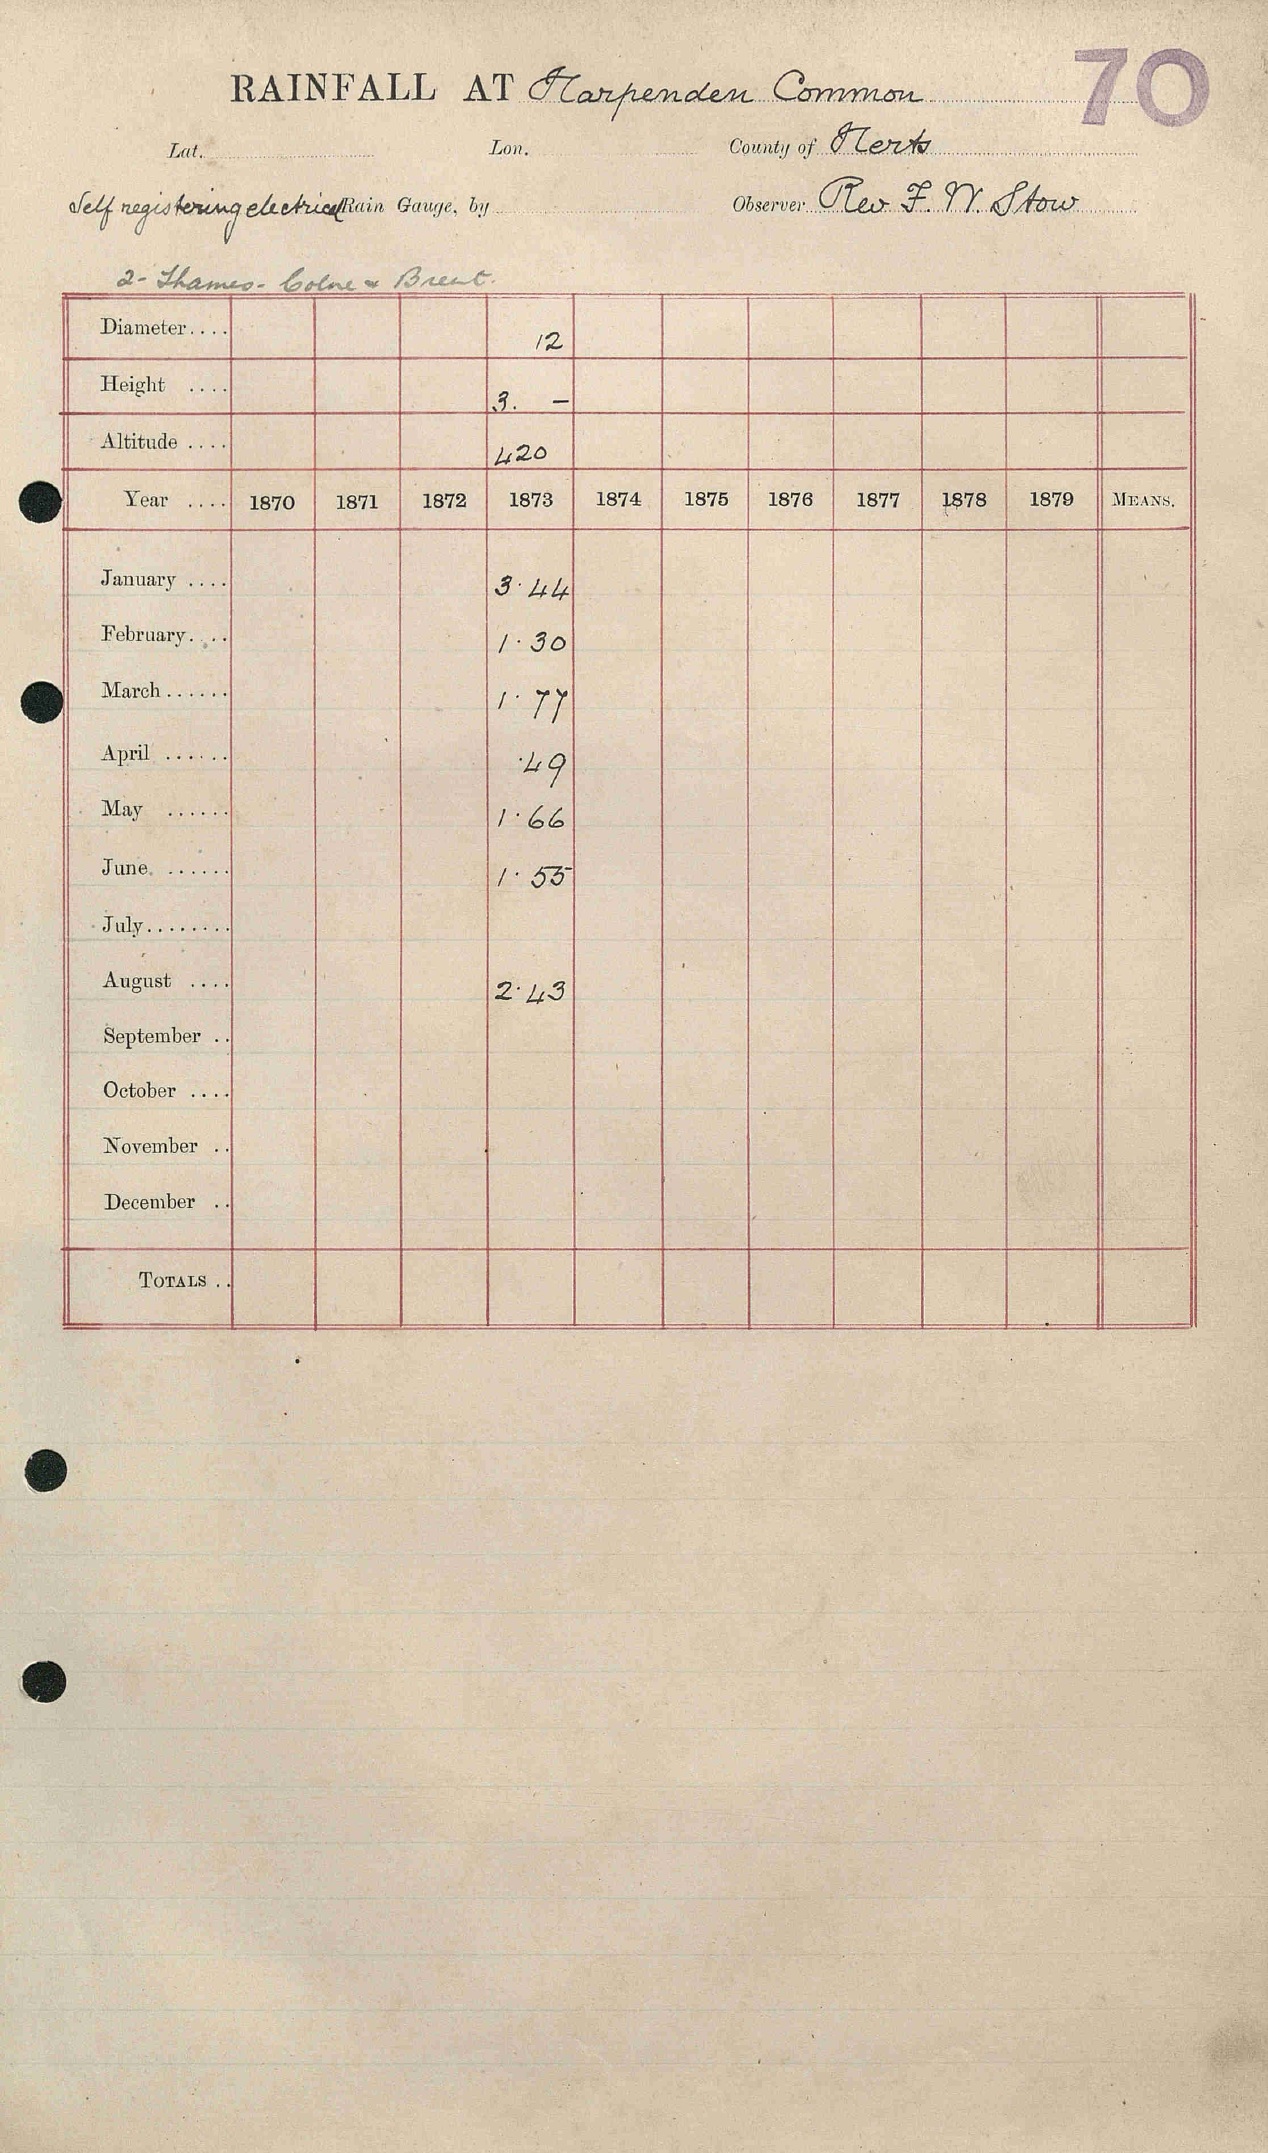 70
RAINFALL AT Harpenden Common
Lat. Lon. County of Herts
Self registering electrical Rain Gauge, by Observer Rev F. W. Stow
2 - Thames - Colne & Brent.
Diameter.... 12
Height .... 3. –
Altitude .... 420
Year .... 1870 1871 1872 1873 1874 1875 1876 1877 1878 1879 MEANS.
January .... 3·44
February.... 1·30
March...... 1·77
April ...... ·49
May ...... 1·66
June ...... 1·55
July........
August .... 2·43
September ..
October ....
November ..
December ..
TOTALS ..